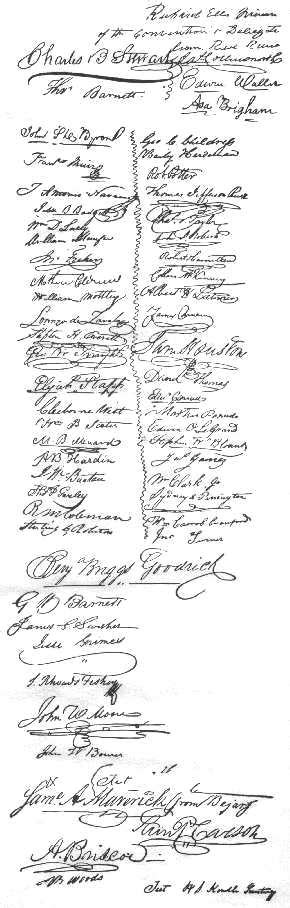 Richard Ellis
of the Convention & Delegate
from Red River
Charles B Stewart
Thos Barnett
Edwin Waller
Asa Brigham
John S D Byrom
Franco Ruiz
J Antonio Navarro
Jesse B Badgett
Wm D Lacy
William Menefee
Jno Fisher
Mathew Caldwell
William Mottley
Lorenzo de Zavala
Stephen H Everitt
Geo W Smyth
Elijah Stapp
Claiborne West
Wm B Scates
M B Menard
A B Hardin
J W Bunton
Thos J Gazley
R M Coleman
Sterling C Robertson
Geo C Childress
Baily Hardeman
Rob Potter
Thomas Jefferson Rusk
Chas S Taylor
John S Roberts
Robert Hamilton
Collin McKinney
Albert H Latimer
James Power
Sam Houston
David Thomas
Edwd Conrad
Martin Parmer
Edwin O LeGrand
Stephen W Blount
Jas Gaines
Wm Clark Jr
Sydney O Penington
Wm Carrol Crawford
Jno Turner
Benj Briggs Goodrich
G W Barnett
James G Swisher
Jesse Grimes
S Rhoads Fisher
John W Moore
John W Bower
Saml A Maverick from Bejar
Sam P Carson
A Briscoe
J B Woods
Test H S Kimble Secretary